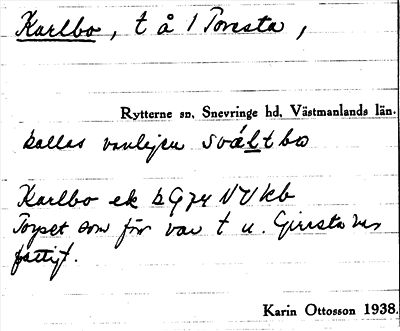 Karlbo, t å 1 Toresta,
Rytterne sn, Snevringe hd, Västmanlands län.
kallas vanligen Sváltbo
Karlbo ek bG74 NV kb
Torpet som för var t u. Girista var
fattigt.
Karin Ottosson 1938.